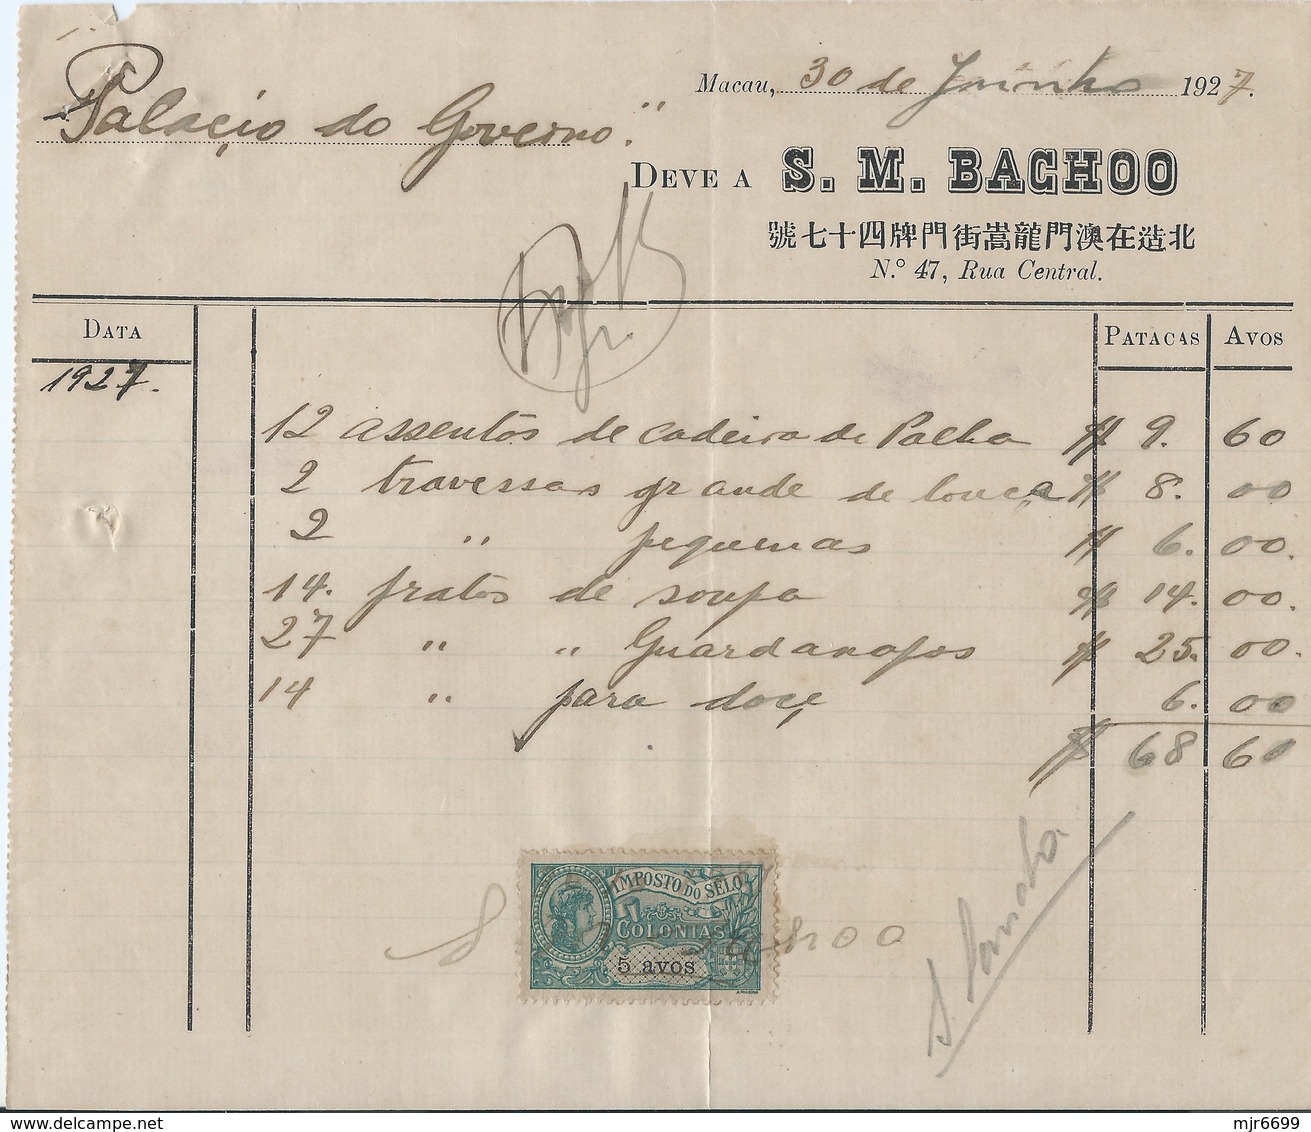 Macau, 30 de Juinho 1927.
"Palaçio do Governo"
DEVE A S. M. BACHOO
號七十四牌門街嵩龍門澳在造北
N.º 47, Rua Central.
DATA PATACAS AVOS
1927.
12 assentos de cadeira de Palha $ 9. 60
2 travessas grande de louça $ 8. 00
2 " pequenas $ 6. 00.
14. pratos de soupa $ 14. 00.
27 " " Guardanapos $ 25. 00.
14 " para doçe 6. 00
$ 68 60
IMPOSTO DO SELO
COLONIAS
5 avos
S Bachoo
mjr6699